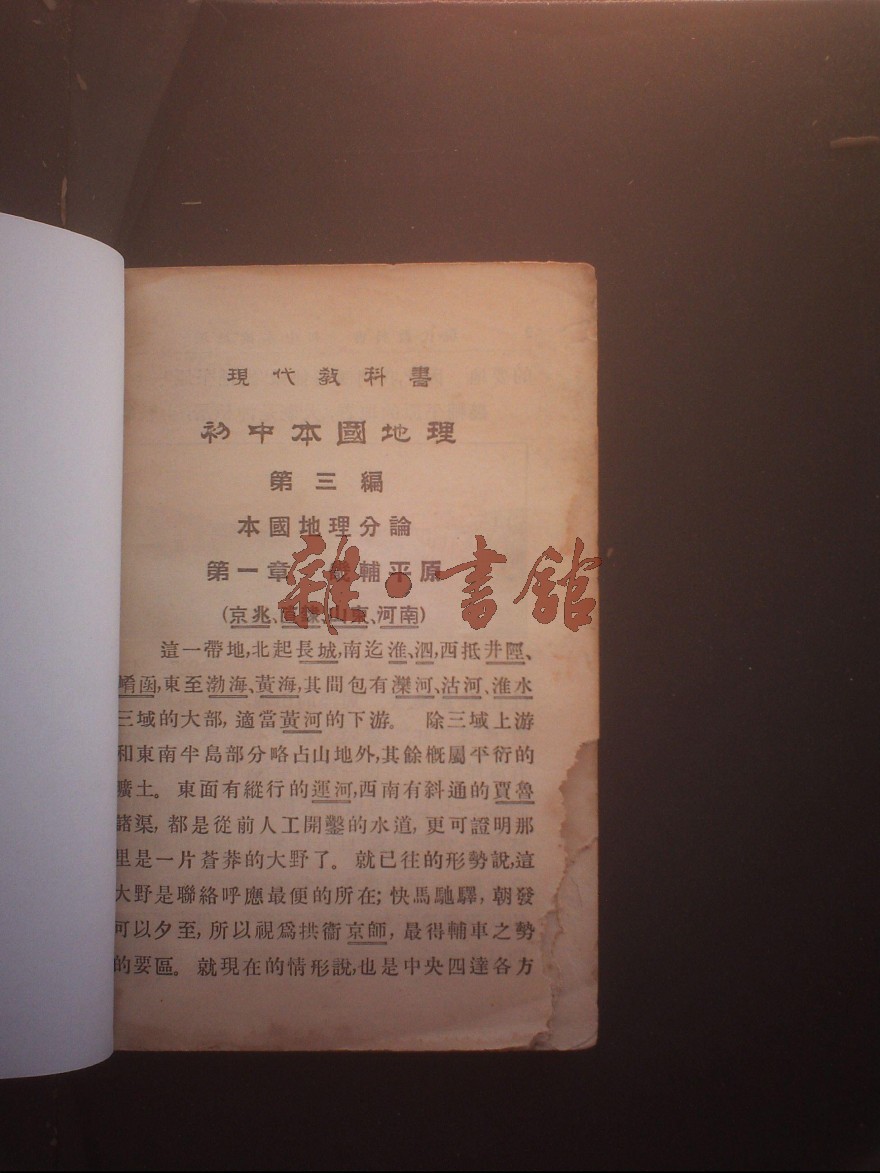 現代教科書
初中本國地理
第三編
本國地理分論
第一章 畿輔平原
(京兆、直隸、山東、河南)
這一帶地,北起長城,南迄淮、泗,西抵井陘、
崤函,東至渤海、黃海,其間包有灤河、沽河、淮水
三域的大部,適當黃河的下游。 除三域上游
和東南半島部分略占山地外,其餘概屬平衍的
曠土。 東面有縱行的運河,西南有斜通的賈魯
諸渠,都是從前人工開鑿的水道,更可證明那
里是一片蒼莽的大野了。 就已往的形勢說,這
大野是聯絡呼應最便的所在;快馬馳驛,朝發
可以夕至,所以視爲拱衞京師,最得輔車之勢
的要區。 就現在的情形說,也是中央四達各方
雜·書館